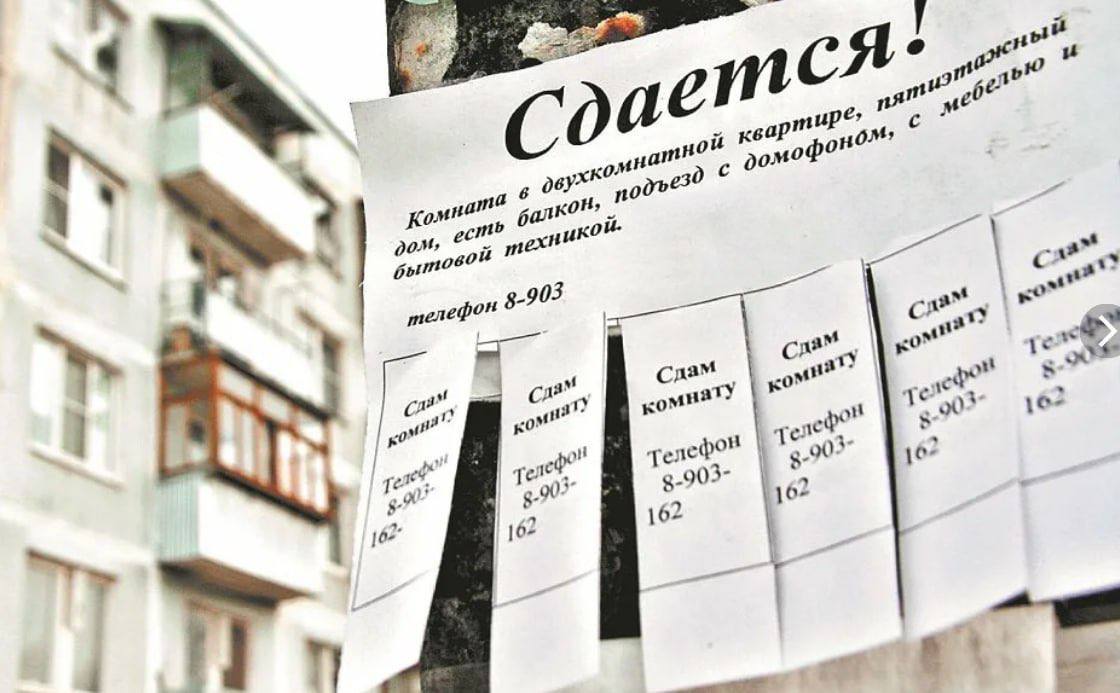 Сдается!
Комната в двухкомнатной квартире, пятиэтажный
дом, есть балкон, подъезд с домофоном, с мебелью и
бытовой техникой.
телефон 8-903
Сдам
комнату
Телефон
8-903-
162-
Сдам
комнату
Телефон
8-903-
162
Сдам
комнату
Телефон
8-903-
162
Сдам
комнату
Телефон
8-903-
162
Сдам
комнату
Телефон
8-903-
162
Сдам
комнату
Телефон
8-903-
162